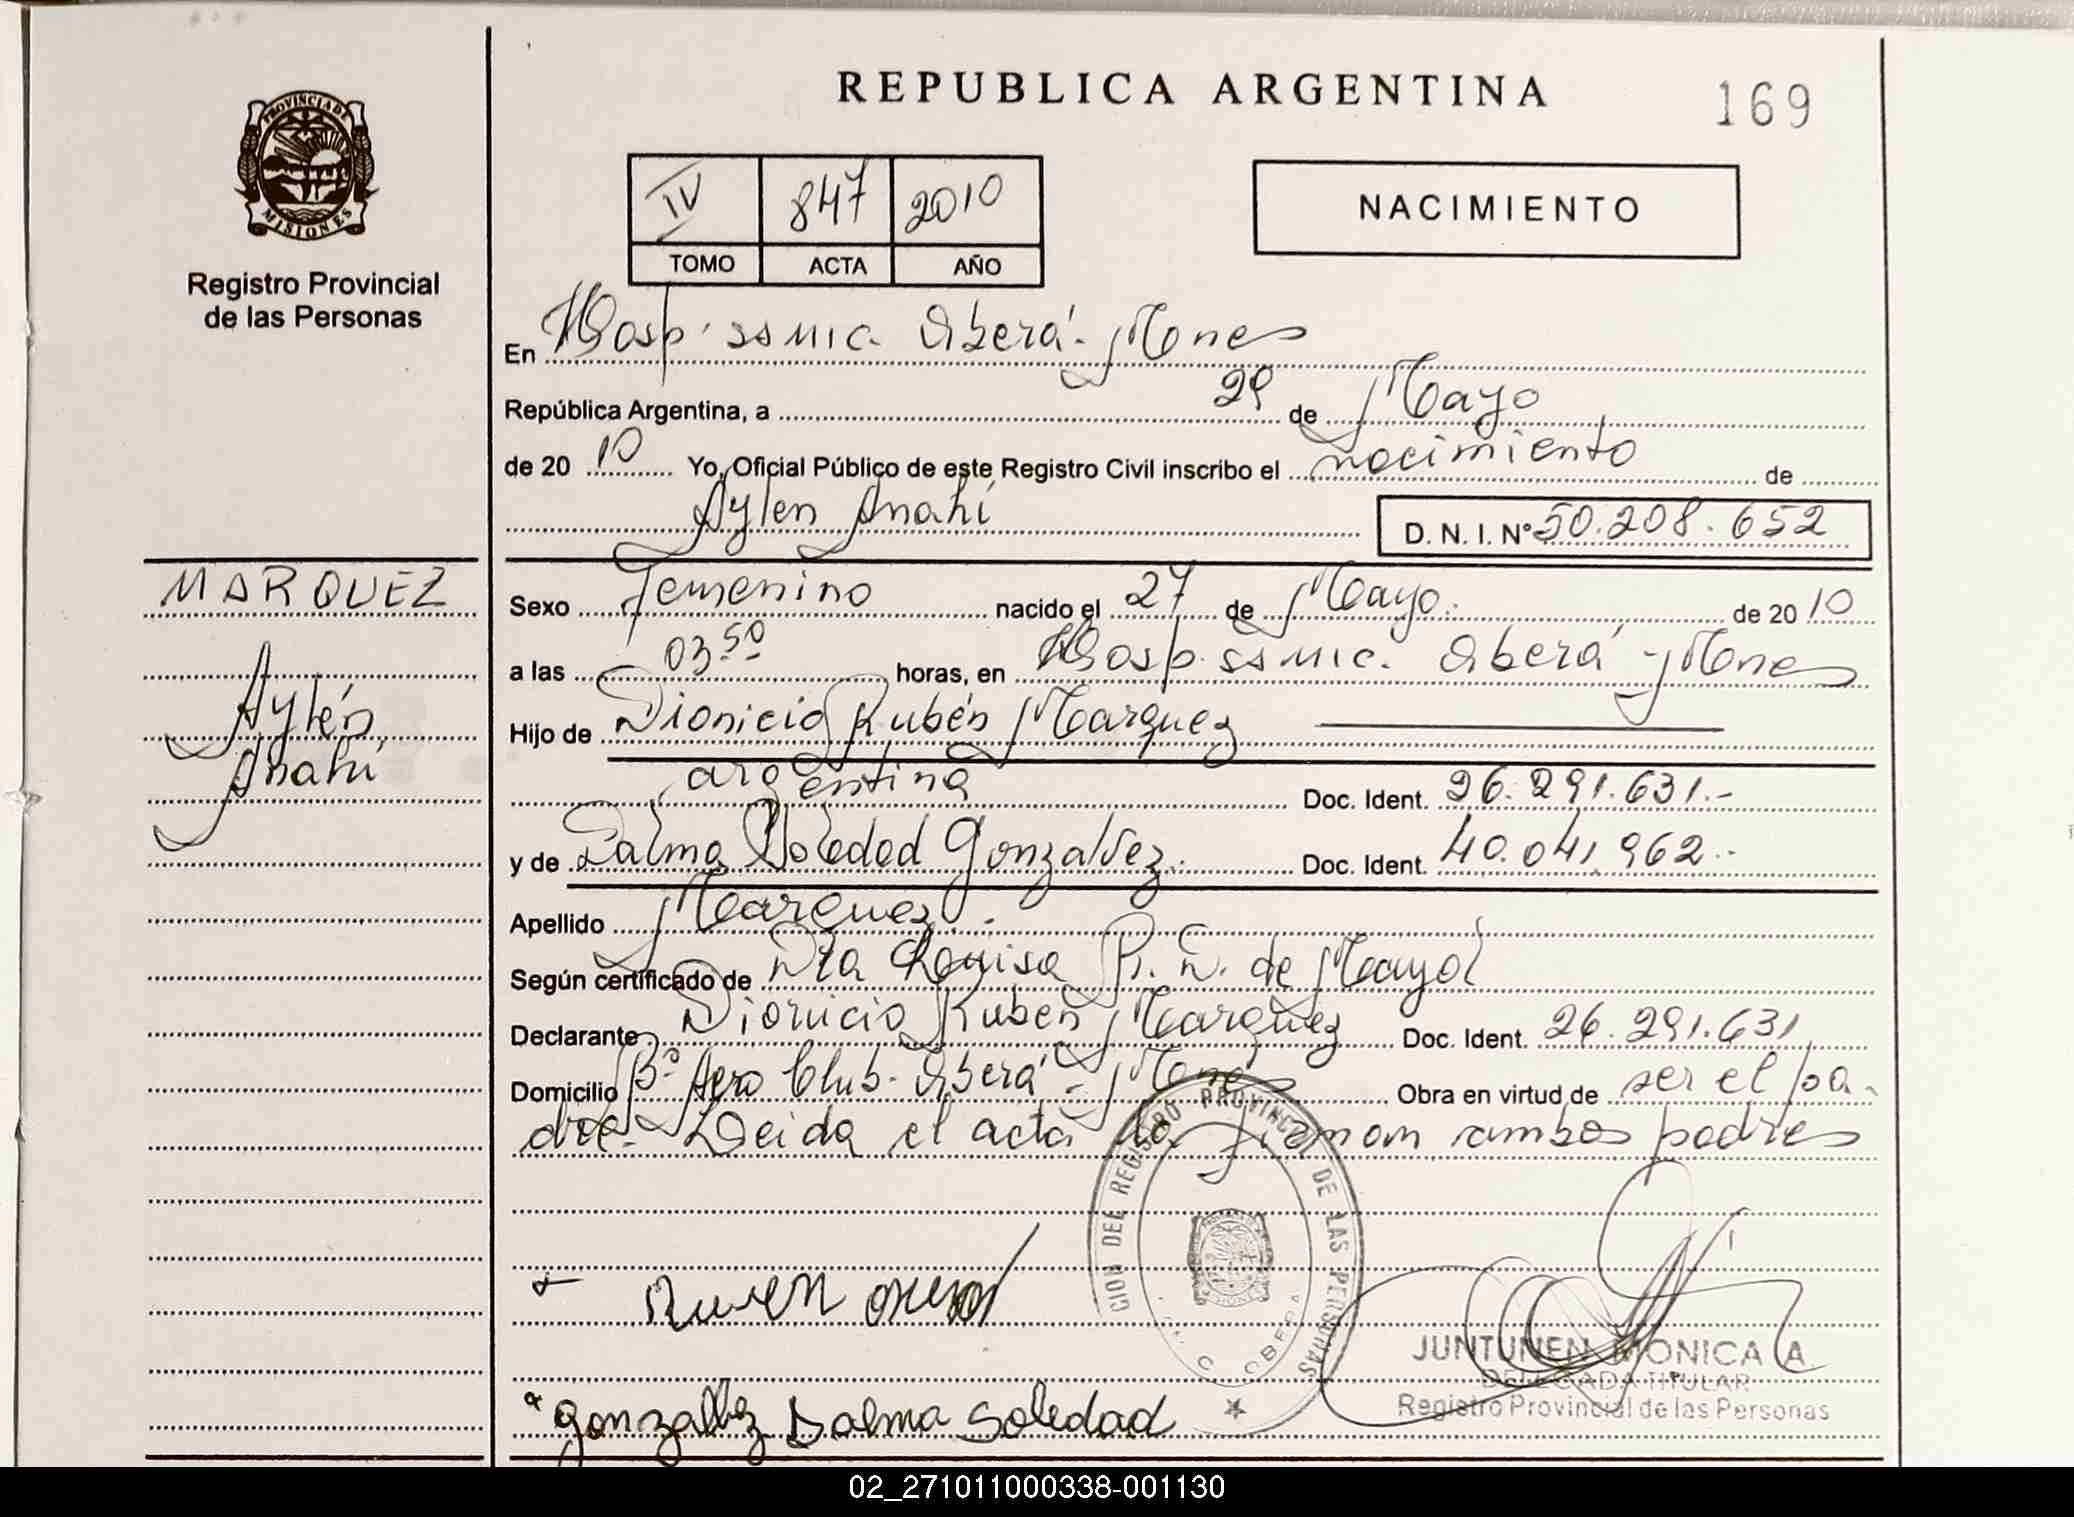 REPUBLICA ARGENTINA
169
PROVINCIA DE
MISIONES
Registro Provincial
de las Personas
IV 847 2010
TOMO ACTA AÑO
NACIMIENTO
En Hosp. ssmic. Oberá - Mones
República Argentina, a 29 de Mayo
de 20 10 Yo, Oficial Público de este Registro Civil inscribo el nacimiento de
Aylen Anahí D. N. I. Nº 50.208.652
MARQUEZ
Aylén
Anahí
Sexo Femenino nacido el 27 de Mayo de 20 10
a las 03 50 horas, en Hosp. ssmic. Oberá - Mones
Hijo de Dionicio Rubén Marquez
argentina Doc. Ident. 26.291.631.-
y de Dalma Soledad Gonzalvez Doc. Ident. 40.041.962.-
Apellido Marquez.
Según certificado de Dra de Mayol
Declarante Dionicio Ruben Marquez Doc. Ident. 26.291.631
Domicilio Bº Aero Club - Oberá - Mones Obra en virtud de ser el pa-
dre. Leida el acta la firman ambos padres
CION DEL REGISTRO PROVINCIAL DE LAS PERSONAS
OBERA
Ruben
JUNTUNEN MONICA A
DELEGADA TITULAR
Registro Provincial de las Personas
Dalma Soledad
02_271011000338-001130